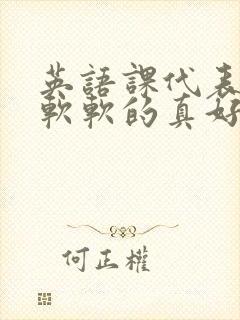 英語課代表
軟軟的真好
何正權